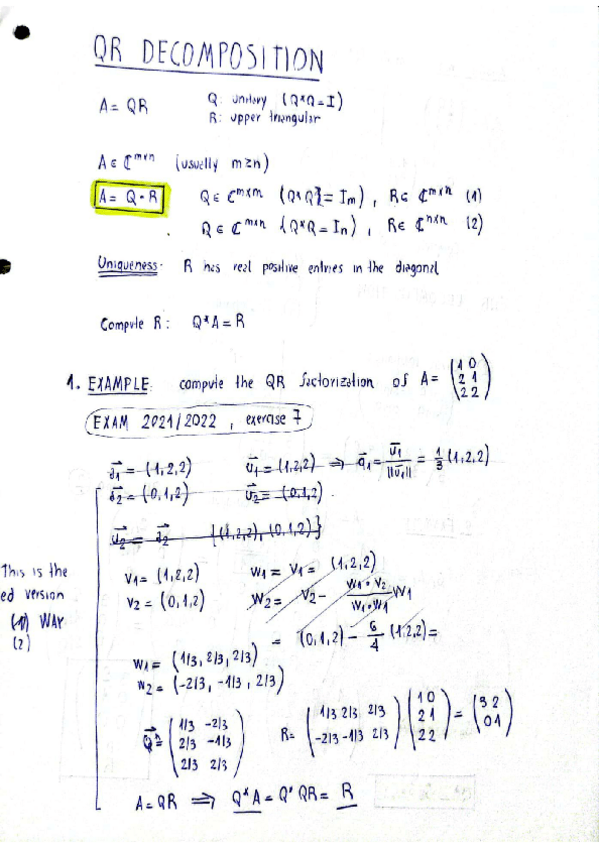 QR DECOMPOSITION
A = QR Q: unitary (Q*Q = I)
R: upper triangular
A ∈ ℂ^{m×n} (usually m ≥ n)
A = Q · R Q ∈ ℂ^{m×m} (Q*Q = I_m), R ∈ ℂ^{m×n} (1)
Q ∈ ℂ^{m×n} (Q*Q = I_n), R ∈ ℂ^{n×n} (2)
Uniqueness. R has real positive entries in the diagonal
Compute R: Q*A = R
1. EXAMPLE: compute the QR factorization of A = (1 0
2 1
2 2)
EXAM 2021/2022, exercise 7
a1 = (1,2,2) u1 = (1,2,2) ⇒ q1 = u1/||u1|| = 1/3 (1,2,2)
a2 = (0,1,2) u2 = (0,1,2)
{(1,2,2), (0,1,2)}
This is the
ed version
(1) WAY
(2)
V1 = (1,2,2) W1 = V1 = (1,2,2)
V2 = (0,1,2) W2 = V2 - (W1 · V2)/(W1 · W1) W1
= (0,1,2) - 6/4 (1,2,2) =
W1 = (1/3, 2/3, 2/3)
W2 = (-2/3, -1/3, 2/3)
Q = (1/3 -2/3
2/3 -1/3
2/3 2/3)
R = (1/3 2/3 2/3
-2/3 -1/3 2/3) (1 0
2 1
2 2) = (3 2
0 1)
A = QR ⇒ Q*A = Q*QR = R